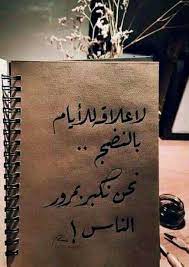 لا علاقه للأيام
بالنضج ..
نحن نكبر بمرور
الناس !